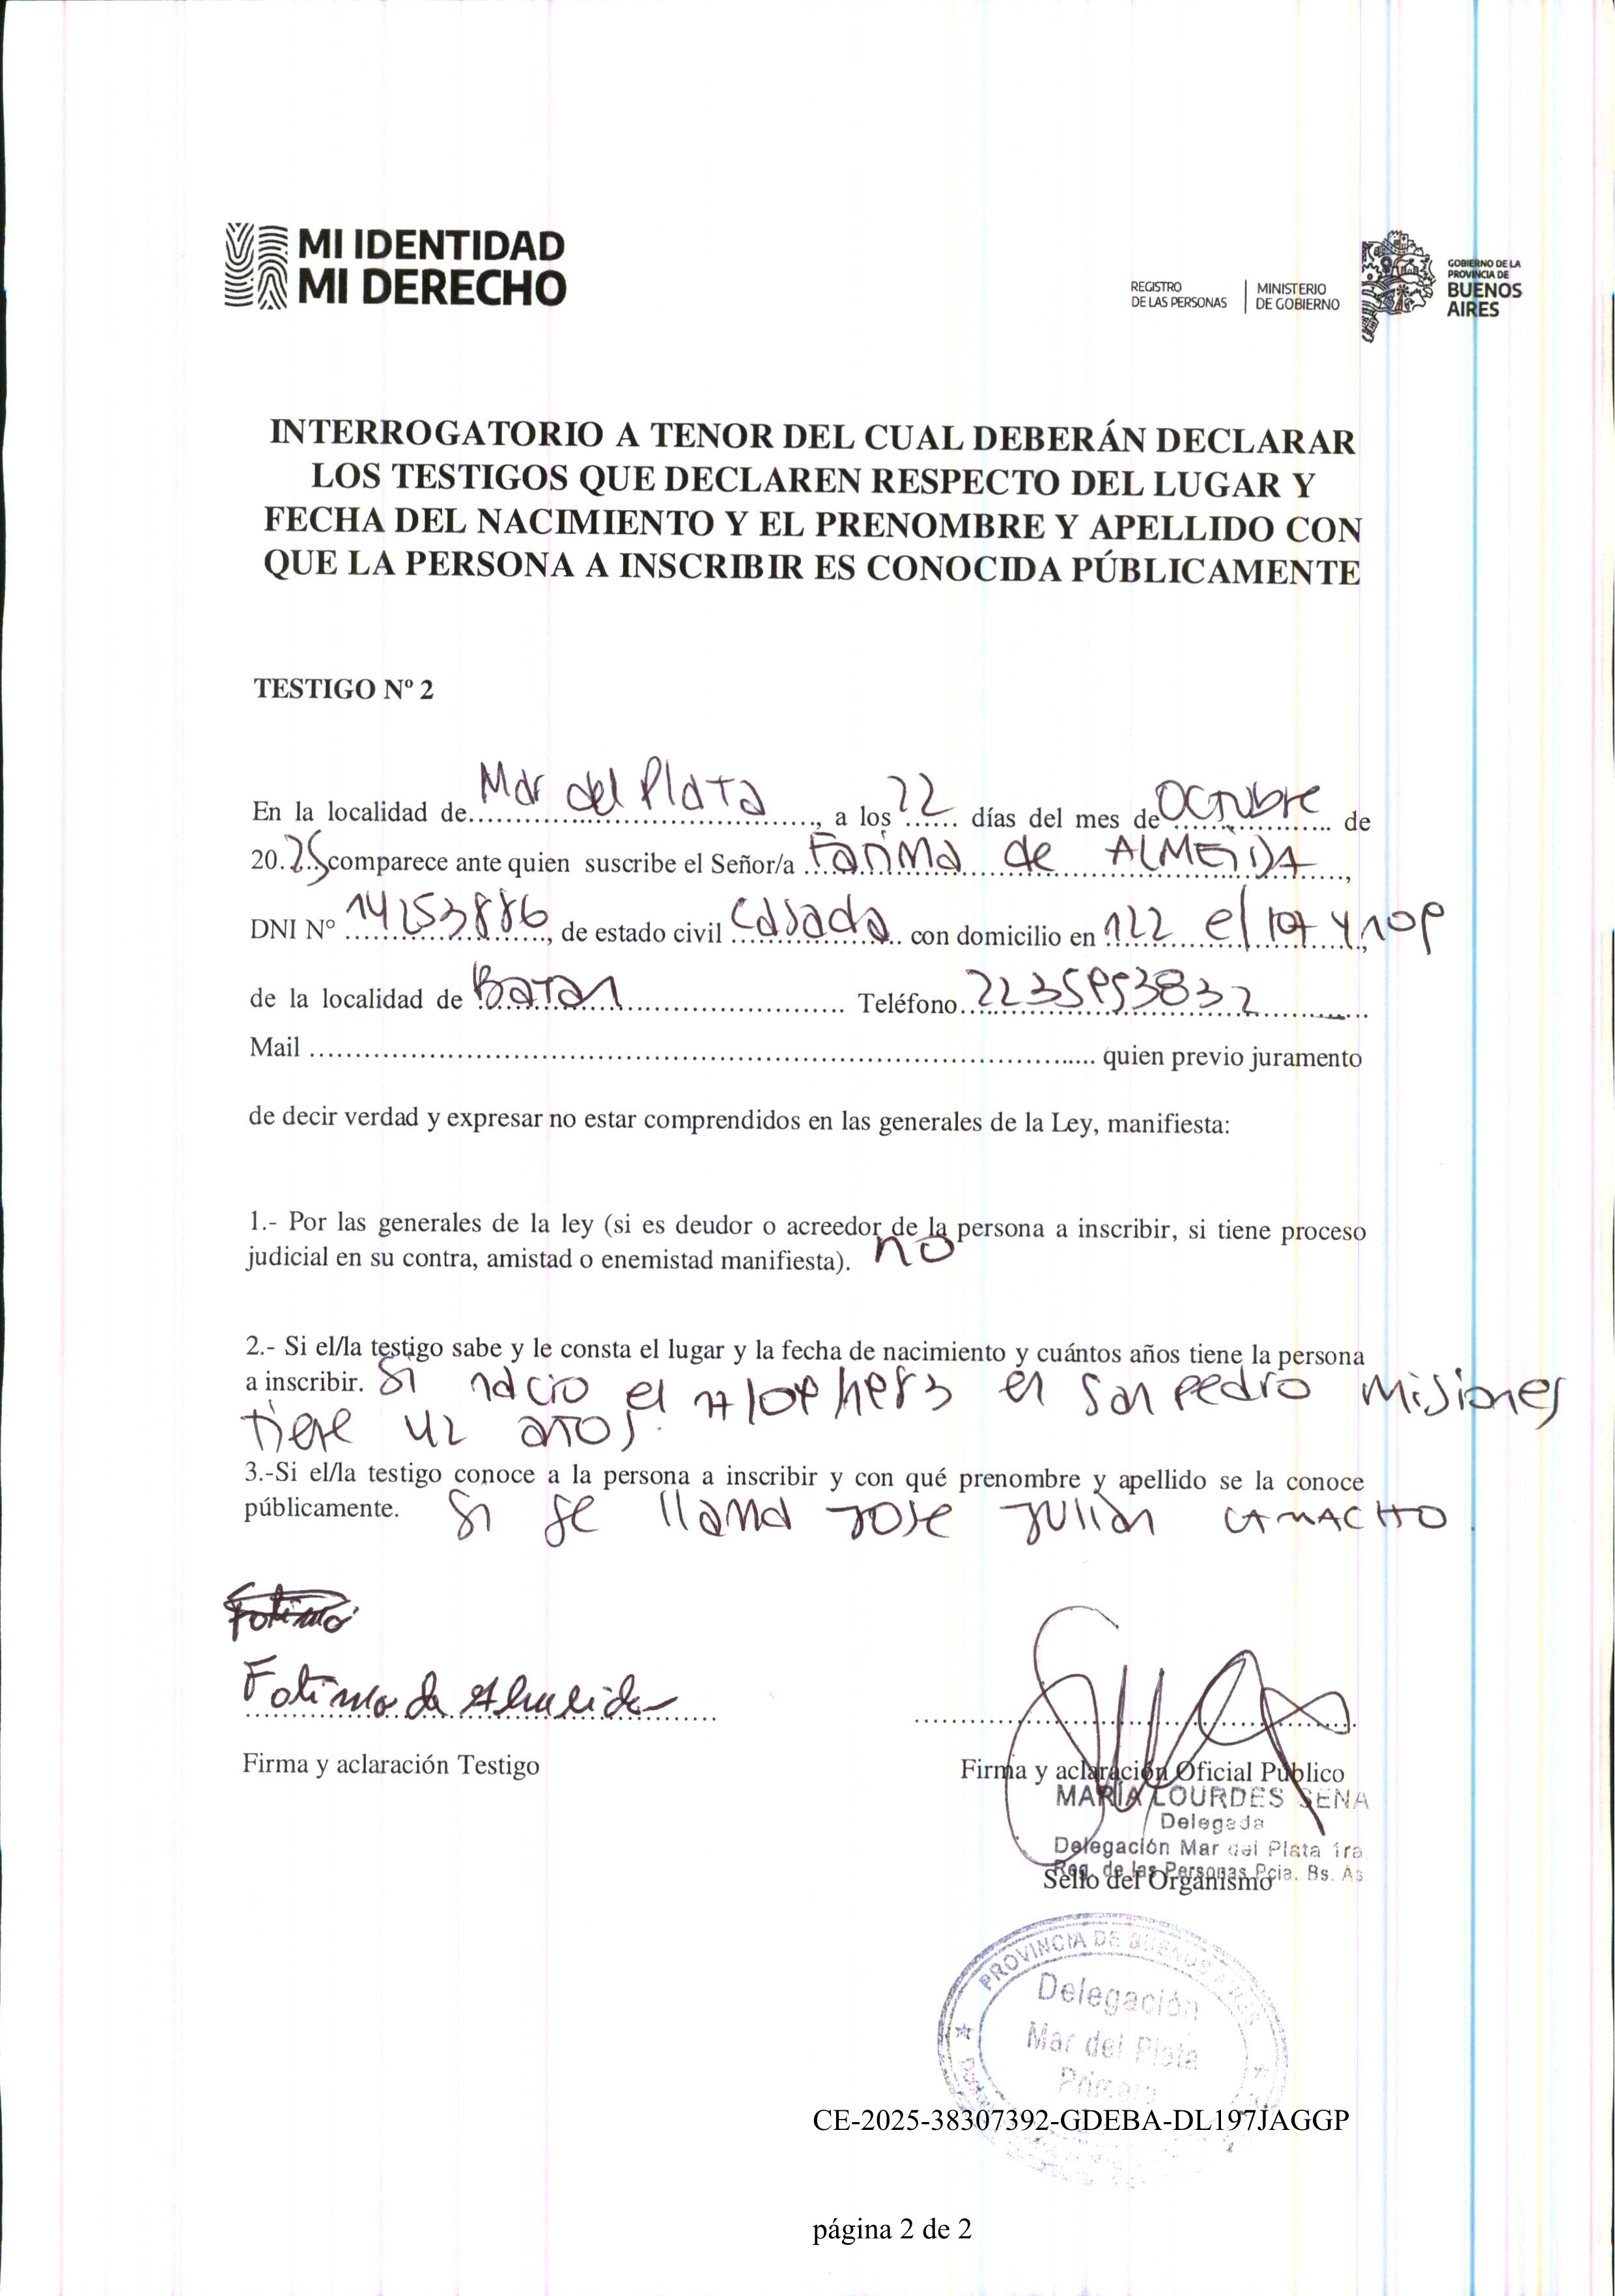 MI IDENTIDAD
MI DERECHO
REGISTRO
DE LAS PERSONAS
MINISTERIO
DE GOBIERNO
GOBIERNO DE LA
PROVINCIA DE
BUENOS
AIRES
INTERROGATORIO A TENOR DEL CUAL DEBERÁN DECLARAR
LOS TESTIGOS QUE DECLAREN RESPECTO DEL LUGAR Y
FECHA DEL NACIMIENTO Y EL PRENOMBRE Y APELLIDO CON
QUE LA PERSONA A INSCRIBIR ES CONOCIDA PÚBLICAMENTE
TESTIGO Nº 2
En la localidad de Mar del Plata, a los 22 días del mes de Octubre de
20.25 comparece ante quien suscribe el Señor/a Fatima de ALMEIDA,
DNI N° 14253886, de estado civil Casada con domicilio en 122 e/ 107 y
de la localidad de Batan Teléfono
Mail quien previo juramento
de decir verdad y expresar no estar comprendidos en las generales de la Ley, manifiesta:
1.- Por las generales de la ley (si es deudor o acreedor de la persona a inscribir, si tiene proceso
judicial en su contra, amistad o enemistad manifiesta). no
2.- Si el/la testigo sabe y le consta el lugar y la fecha de nacimiento y cuántos años tiene la persona
a inscribir. Si nacio el en San Pedro Misiones
tiene 42 años.
3.-Si el/la testigo conoce a la persona a inscribir y con qué prenombre y apellido se la conoce
públicamente. Si se llama Jose Julian CAMACHO
Fatima
Fatima de Almeida
Firma y aclaración Testigo
Firma y aclaración Oficial Público
MARÍA LOURDES SENA
Delegada
Delegación Mar del Plata 1ra.
Reg. de las Personas Pcia. Bs. As
Sello del Organismo
PROVINCIA DE BUENOS AIRES
Delegación
Mar del Plata
Primera
CE-2025-38307392-GDEBA-DL197JAGGP
página 2 de 2